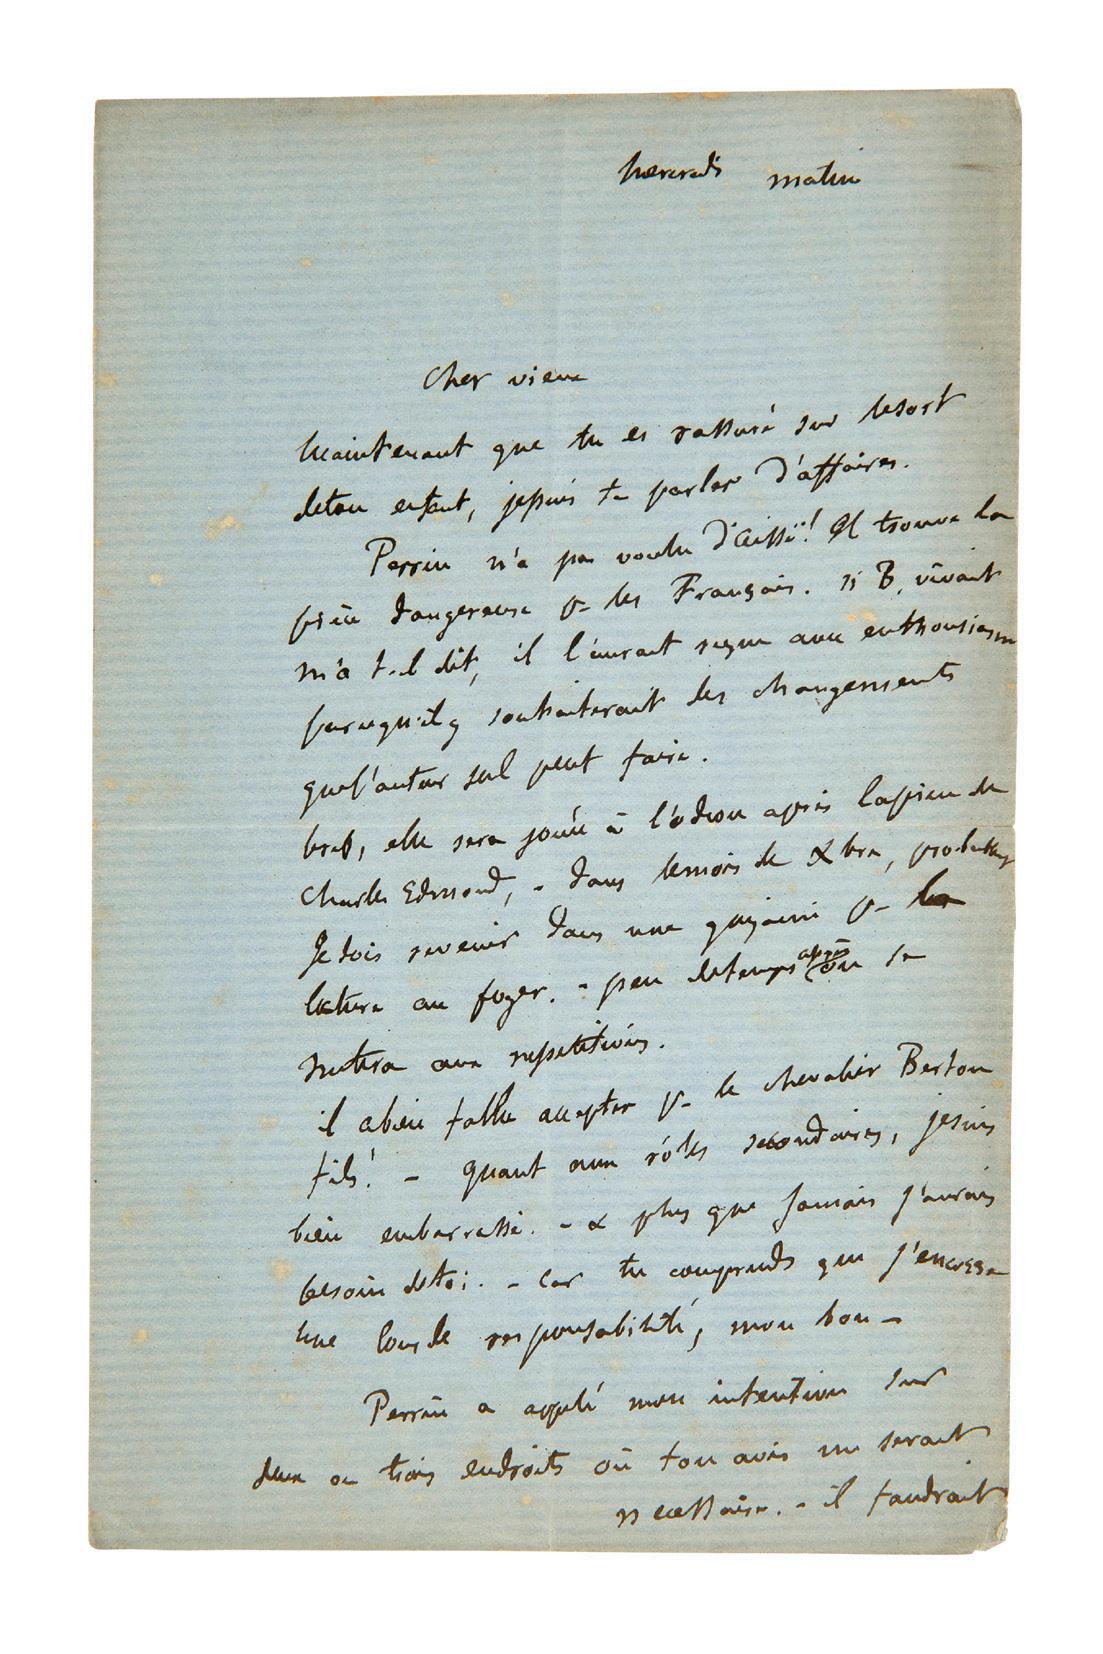 Mercredi matin
Cher vieux
Maintenant que tu es rassuré sur le sort
de ton enfant, je puis te parler d'affaires.
Perrin n'a pas voulu d'Aïssé! Il trouve la
pièce dangereuse p- les Français. si B. vivait
m'a t-il dit, il l'aurait reçue avec enthousiasme
parcequ'il y souhaiterait des changements
que l'auteur seul peut faire.
bref, elle sera jouée à l'odéon après la pièce de
Charles Edmond, - dans le mois de Xbre, probablement
Je dois revenir dans une quinzaine p- la
lecture au foyer. - peu de temps après on se
mettra aux repetitions.
il a bien fallu accepter p- le chevalier Berton
fils! - quant aux rôles secondaires, je suis
bien embarrassé. - & plus que jamais j'aurais
besoin de toi. - Car tu comprends que j'encours
une lourde responsabilité, mon bon -
Perrin a appelé mon intention sur
deux ou trois endroits où ton avis me serait
necessaire. - il faudrait